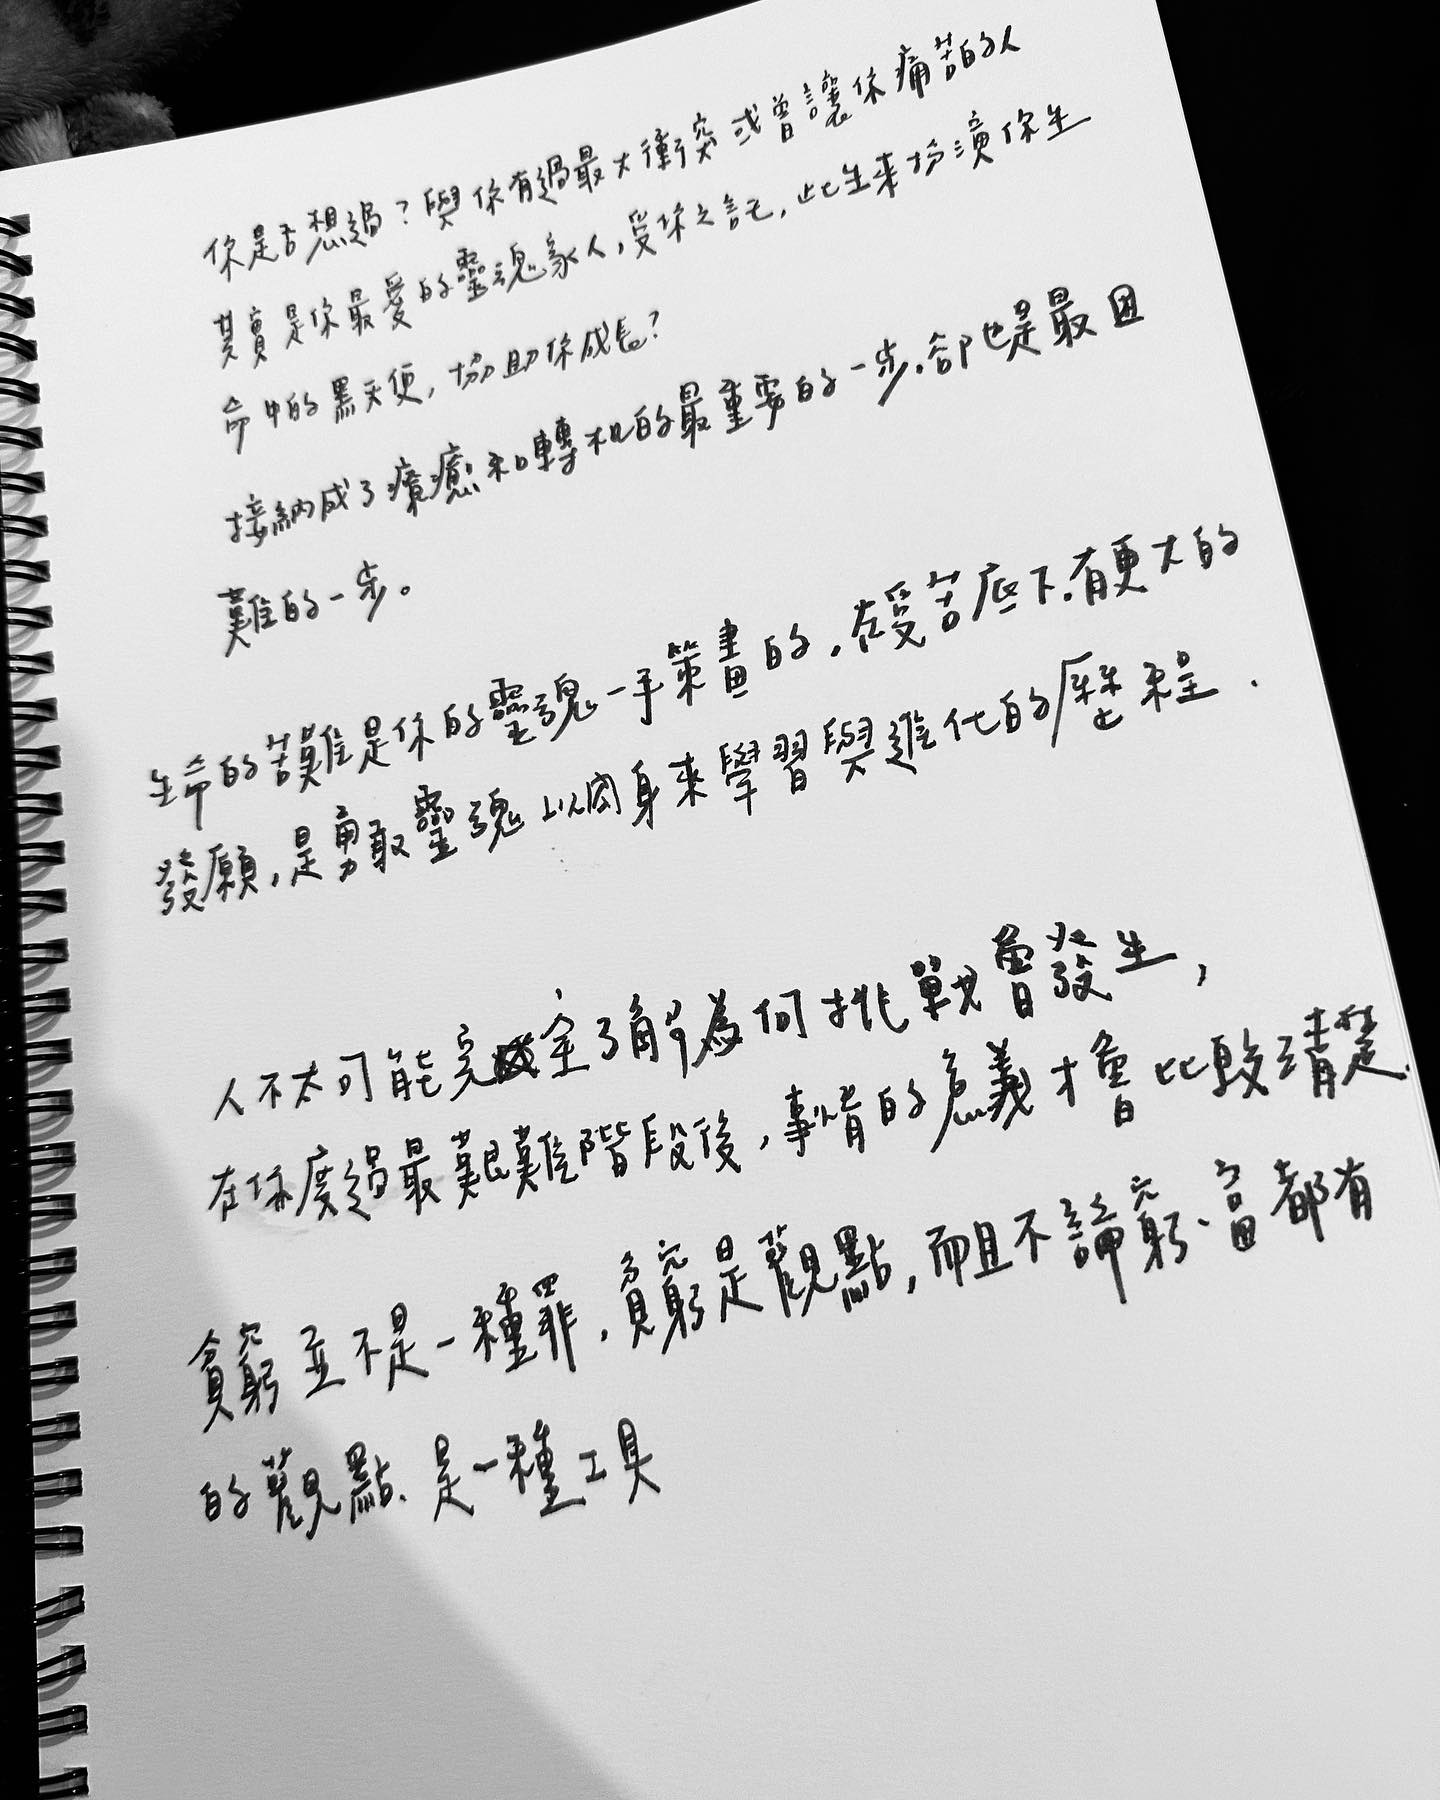 你是否想過？與你有過最大衝突或曾讓你痛苦的人
其實是你最愛的靈魂家人，受你之託，此生來扮演你生
命中的黑天使，協助你成長？
接納成了療癒和轉机的最重要的一步。卻也是最困
難的一步。
生命的苦難是你的靈魂一手策畫的，在受苦底下。有更大的
發願，是勇敢靈魂以肉身來學習與進化的歷程．
人不太可能完全了解為何挑戰會發生，
在你度過最艱難階段後，事情的意義才會比較清楚．
貧窮並不是一種罪，貧窮是觀點，而且不論窮、富都有
的觀點、是一種工具